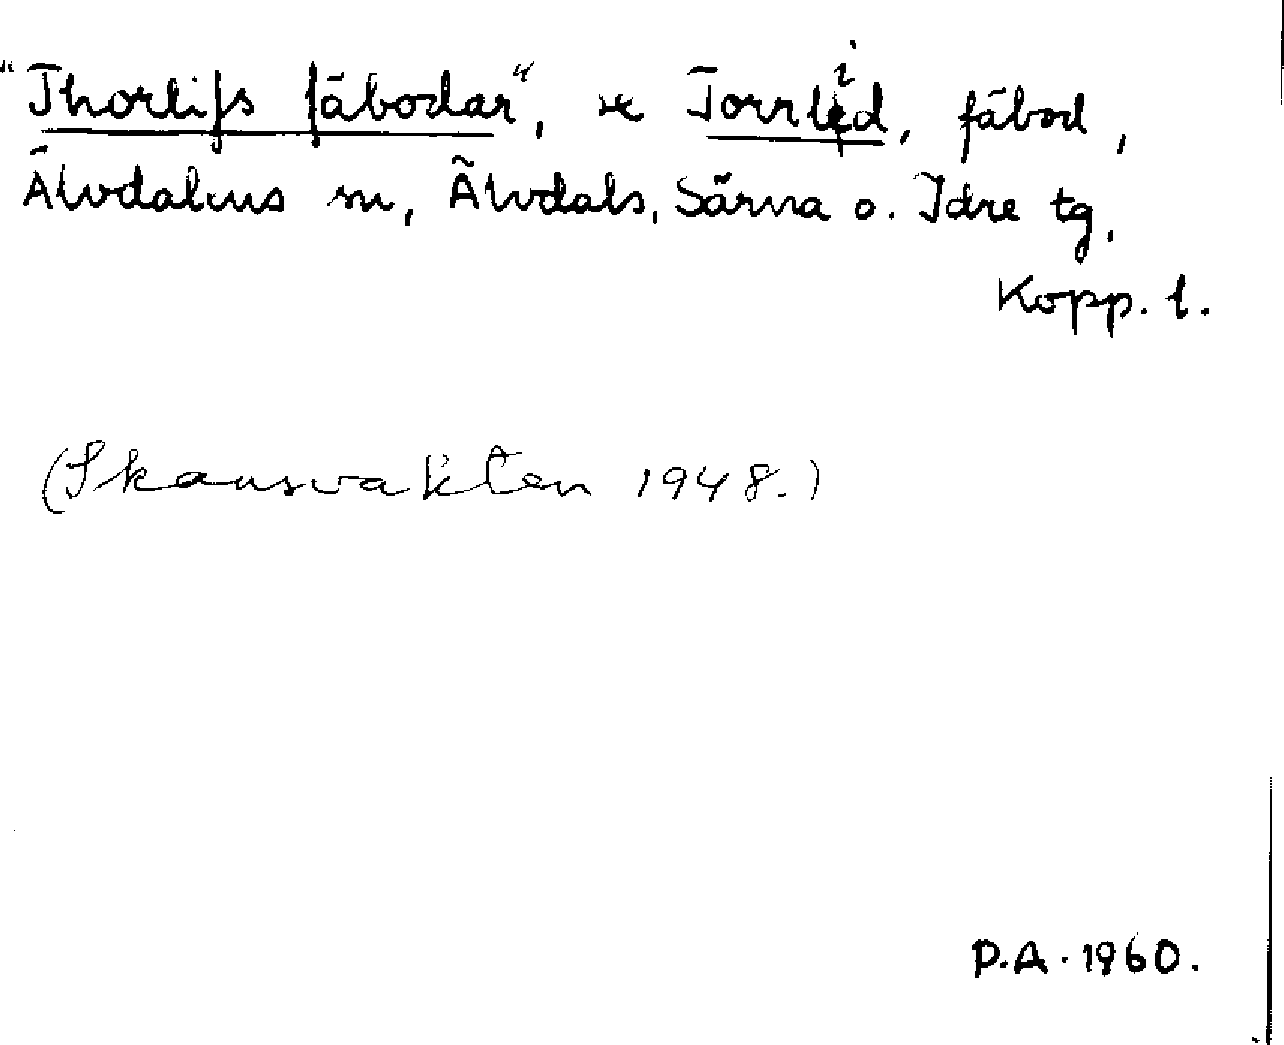 "Thorlifs fäbodar", se Torrlid, fäbod,
Älvdalens sn, Älvdals, Särna o. Idre tg,
Kopp. l.
(Skansvakten 1948.)
P.A. 1960.